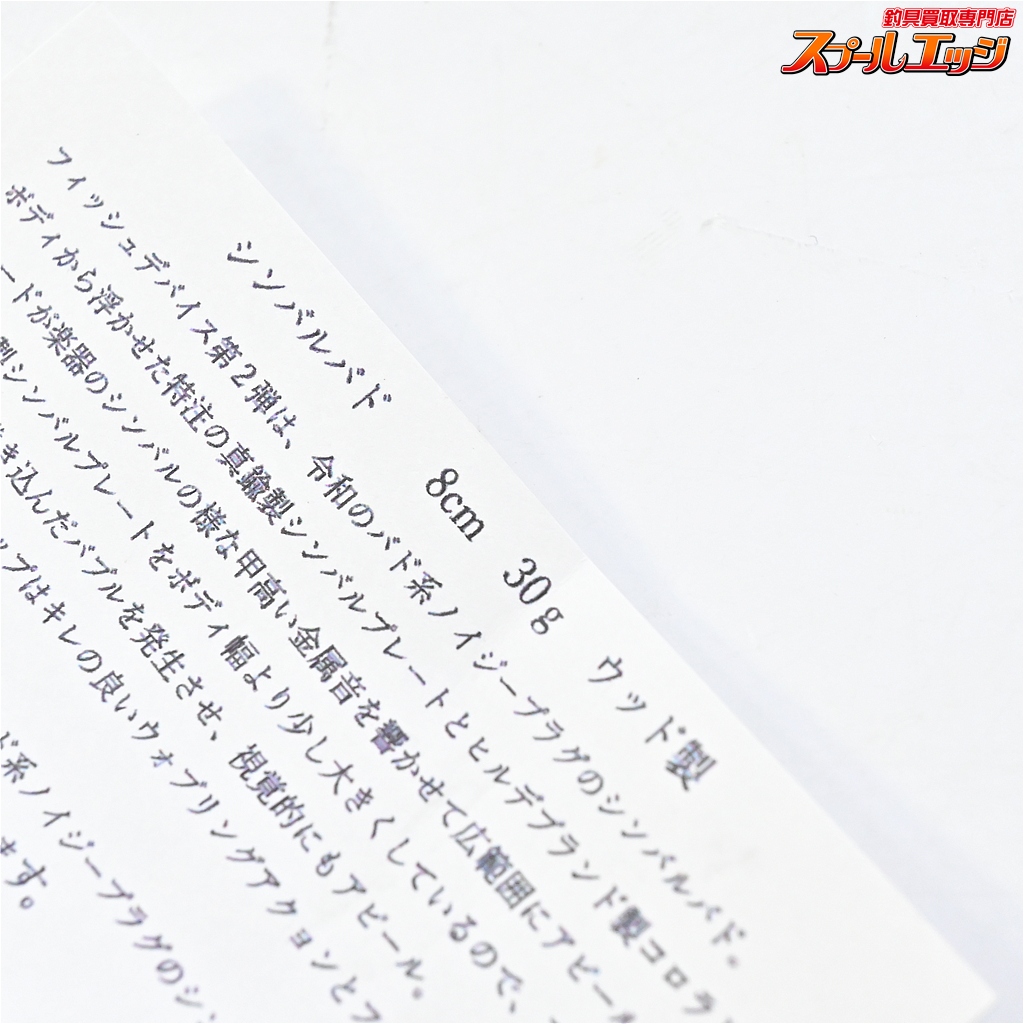 釣具買取専門店
スプールエッジ
シンバルバド 8cm 30g ウッド製
フィッシュデバイス第2弾は、令和のバド系ノイジープラグのシンバルバド。
ボディから浮かせた特注の真鍮製シンバルプレートとヒルデブランド製コロラ
ードが楽器のシンバルの様な甲高い金属音を響かせて広範囲にアピール
製シンバルプレートをボディ幅より少し大きくしているので、
き込んだバブルを発生させ、視覚的にもアピール。
ップはキレの良いウォブリングアクションとフ
ド系ノイジープラグのシン
ます。